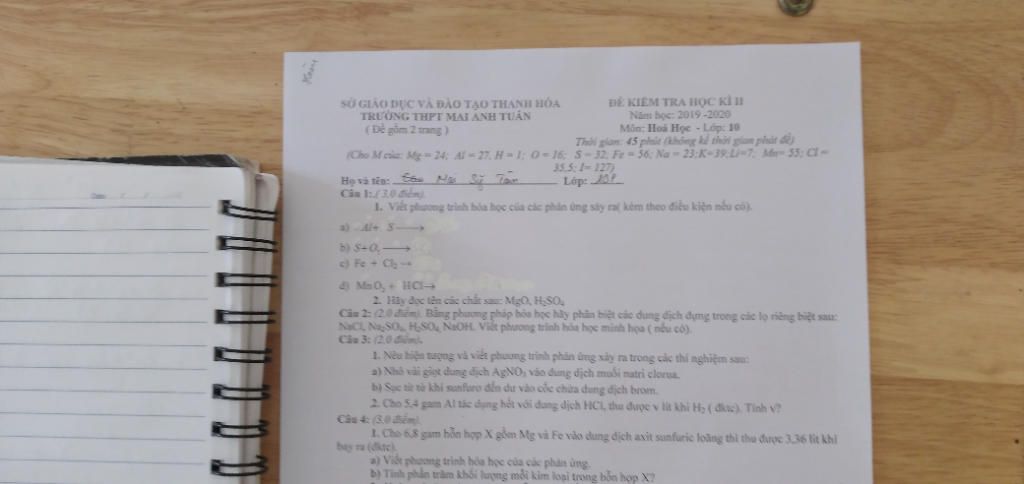 SỞ GIÁO DỤC VÀ ĐÀO TẠO THANH HÓA
TRƯỜNG THPT MAI ANH TUẤN
( Đề gồm 2 trang )
ĐỀ KIỂM TRA HỌC KÌ II
Năm học: 2019 -2020
Môn: Hoá Học - Lớp: 10
Thời gian: 45 phút (không kể thời gian phát đề)
(Cho M của: Mg = 24; Al = 27, H = 1; O = 16; S = 32; Fe = 56; Na = 23;K=39;Li=7; Mn= 55; Cl =
35,5; I= 127)
Họ và tên: Mai Sỹ Lớp:
Câu 1: ( 3,0 điểm).
1. Viết phương trình hóa học của các phản ứng sảy ra( kèm theo điều kiện nếu có).
a) Al+ S ⟶
b) S+O₂ ⟶
c) Fe + Cl₂ →
d) MnO₂ + HCl→
2. Hãy đọc tên các chất sau: MgO, H₂SO₄
Câu 2: (2,0 điểm). Bằng phương pháp hóa học hãy phân biệt các dung dịch đựng trong các lọ riêng biệt sau:
NaCl, Na₂SO₄, H₂SO₄, NaOH. Viết phương trình hóa học minh họa ( nếu có).
Câu 3: (2,0 điểm).
1. Nêu hiện tượng và viết phương trình phản ứng xảy ra trong các thí nghiệm sau:
a) Nhỏ vài giọt dung dịch AgNO₃ vào dung dịch muối natri clorua.
b) Sục từ từ khí sunfurơ đến dư vào cốc chứa dung dịch brom.
2. Cho 5,4 gam Al tác dụng hết với dung dịch HCl, thu được v lít khí H₂ ( đktc). Tính v?
Câu 4: (3,0 điểm).
1. Cho 6,8 gam hỗn hợp X gồm Mg và Fe vào dung dịch axit sunfuric loãng thì thu được 3,36 lít khí
bay ra (đktc).
a) Viết phương trình hóa học của các phản ứng.
b) Tính phần trăm khối lượng mỗi kim loại trong hỗn hợp X?